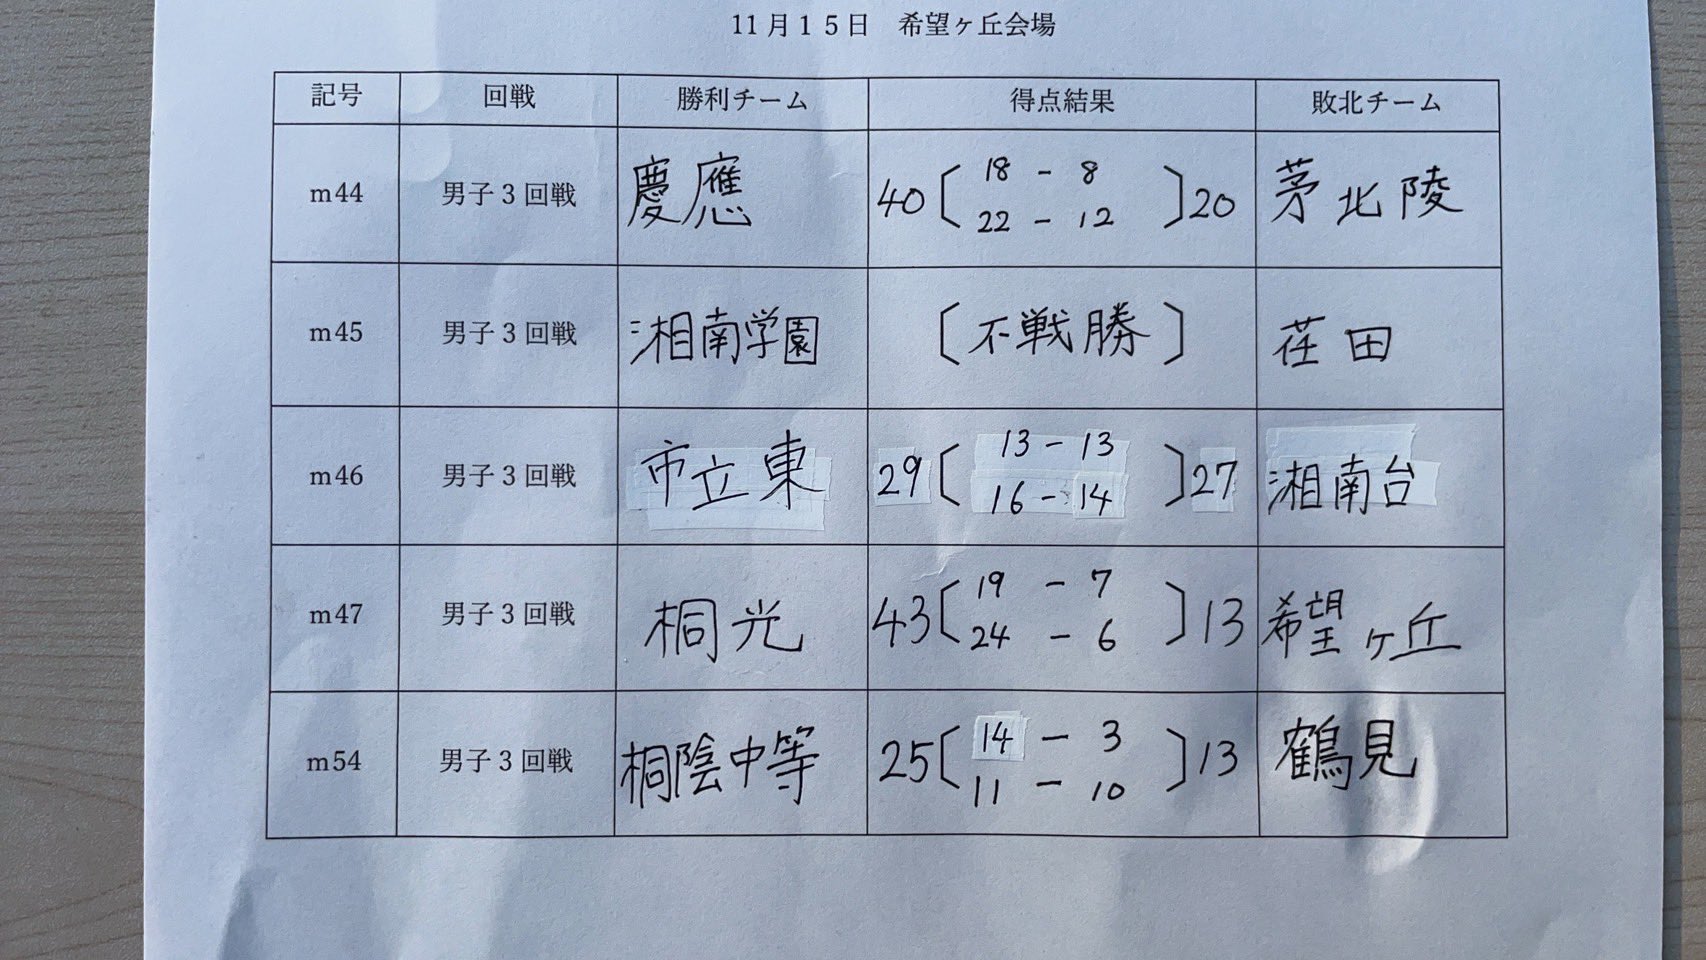 11月15日 希望ヶ丘会場
記号 回戦 勝利チーム 得点結果 敗北チーム
m44 男子3回戦 慶應 40 [ 18 - 8 22 - 12 ] 20 茅北陵
m45 男子3回戦 湘南学園 [ 不戦勝 ] 荏田
m46 男子3回戦 市立東 29 [ 13 - 13 16 - 14 ] 27 湘南台
m47 男子3回戦 桐光 43 [ 19 - 7 24 - 6 ] 13 希望ヶ丘
m54 男子3回戦 桐陰中等 25 [ 14 - 3 11 - 10 ] 13 鶴見